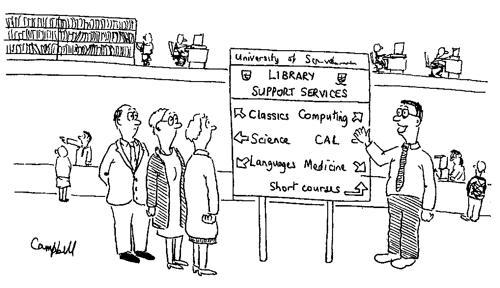 University of
LIBRARY
SUPPORT SERVICES
Classics Computing
Science CAL
Languages Medicine
Short courses
Campbell